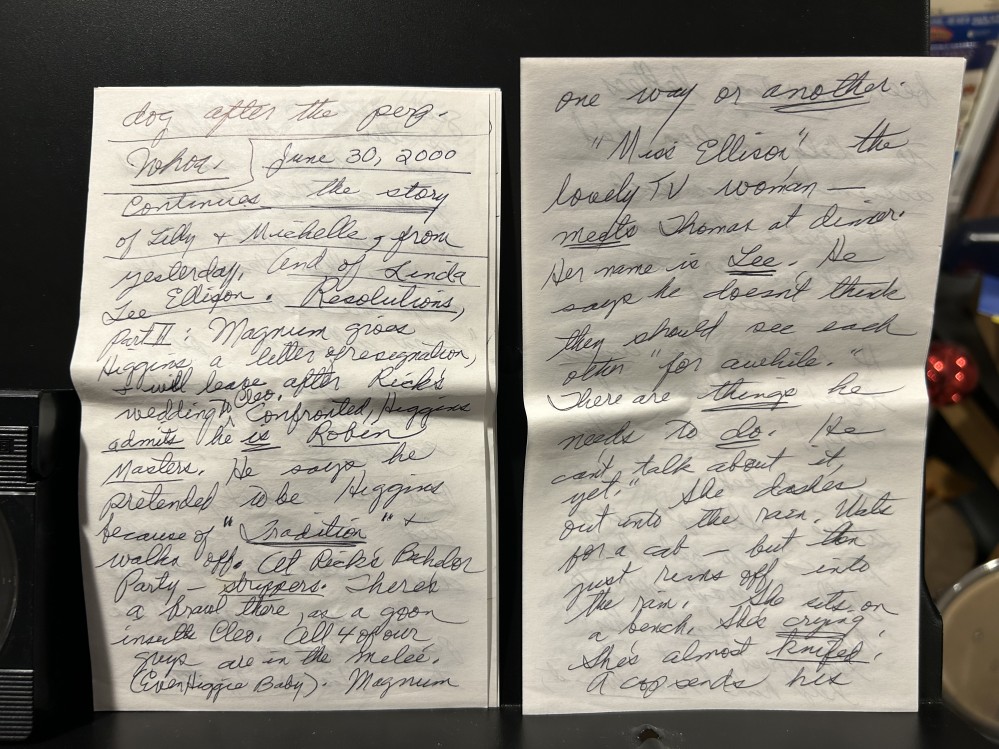 dog after the perp.
Whoa. } June 30, 2000
Continues the story
of Lilly + Michelle, from
yesterday. And of Linda
Lee Ellison. Resolutions,
Part II: Magnum gives
Higgins a letter of resignation,
I will leave after Rick's
wedding to Cleo. Confronted, Higgins
admits he is Robin
Masters. He says he
pretended to be Higgins
because of "Tradition" +
walks off. At Rick's Bachelor
Party - strippers. There's
a brawl there, as a goon
insults Cleo. All 4 of our
guys are in the melee.
(Even Higgie Baby). Magnum
one way or another.
"Miss Ellison" the
lovely TV woman —
meets Thomas at dinner.
Her name is Lee. He
says he doesn't think
they should see each
other "for awhile."
There are things he
needs to do. He
can't talk about it,
yet." She dashes
out into the rain. Waits
for a cab — but then
just runs off into
the rain. She sits on
a bench. She's crying
She's almost knifed!
A cop sends his